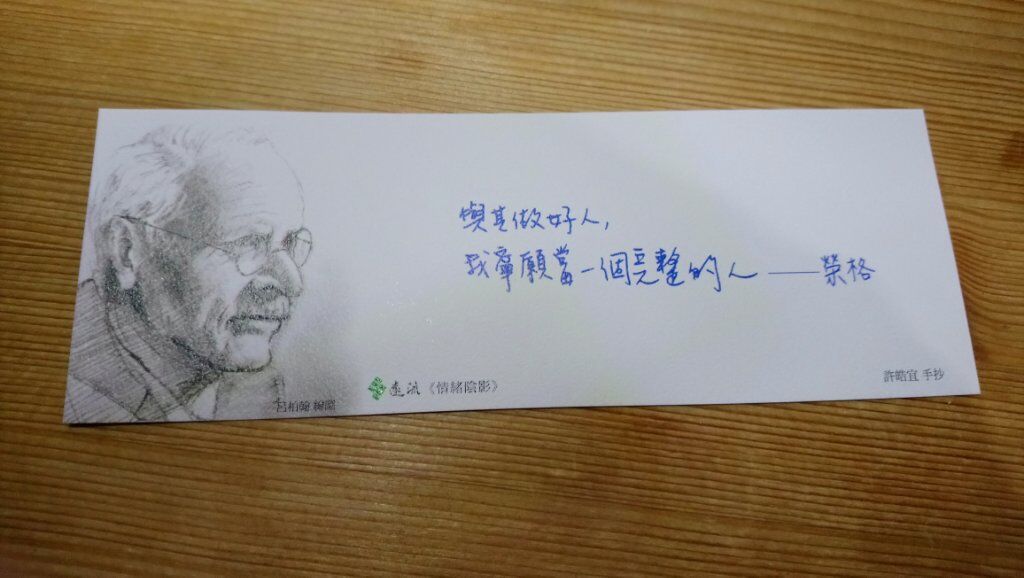 與其做好人,
我寧願當一個完整的人 ——榮格
遠流《情緒陰影》
呂柏翰 繪圖
許皓宜 手抄